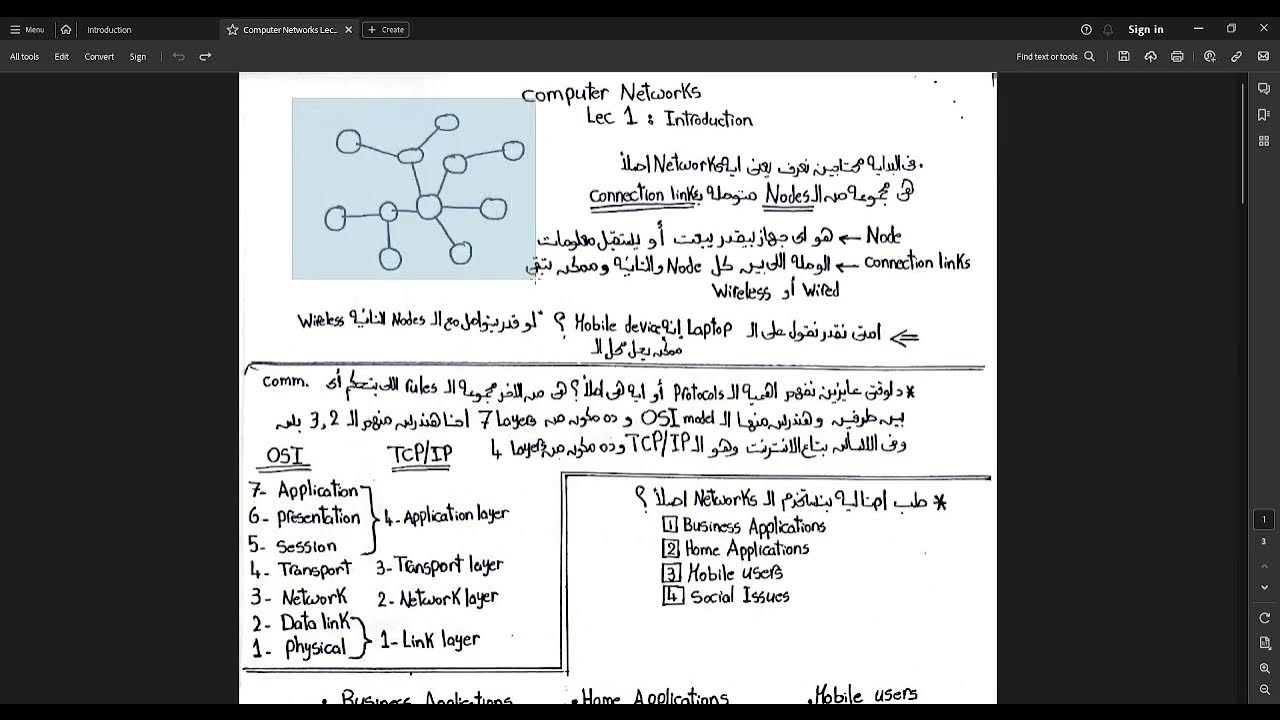 Menu
Introduction
Computer Networks Lec...
Create
Sign in
All tools
Edit
Convert
Sign
Find text or tools
Computer Networks
Lec 1 : Introduction
. فى البداية محتاجين نعرف يعنى ايه Networks اصلاً
هى مجموعة من الـ Nodes متوصلة بـ Connection links
Node ← هو اى جهاز بيقدر يبعت أو يستقبل معلومات
Connection links ← الوصلة اللى بين كل Node والتانية وممكن تبقى
Wired أو Wireless
⇐ امتى نقدر نقول على الـ Laptop إنه Mobile device ؟ " لو قدر يتواصل مع الـ Nodes التانية Wireless
ممكن يحل محل الـ
* دلوقتى عايزين نفهم اهمية الـ Protocols أو ايه هى اصلاً ؟ هى من الآخر مجموعة الـ rules اللى بتحكم أى comm.
بين طرفين وهندرس منها الـ OSI model وده مكون من 7 layers احنا هندرس منهم الـ 3,2 بس
وفى الأساس بتاع الانترنت وهو الـ TCP/IP وده مكون من 4 layers
OSI
TCP/IP
7- Application
6- Presentation
5- Session
4- Transport
3- Network
2- Data link
1- Physical
4- Application layer
3- Transport layer
2- Network layer
1- Link layer
* طب احنا ليه بنستخدم الـ Networks اصلاً ؟
1 Business Applications
2 Home Applications
3 Mobile users
4 Social Issues
. Business Applications
. Home Applications
. Mobile users
1
3